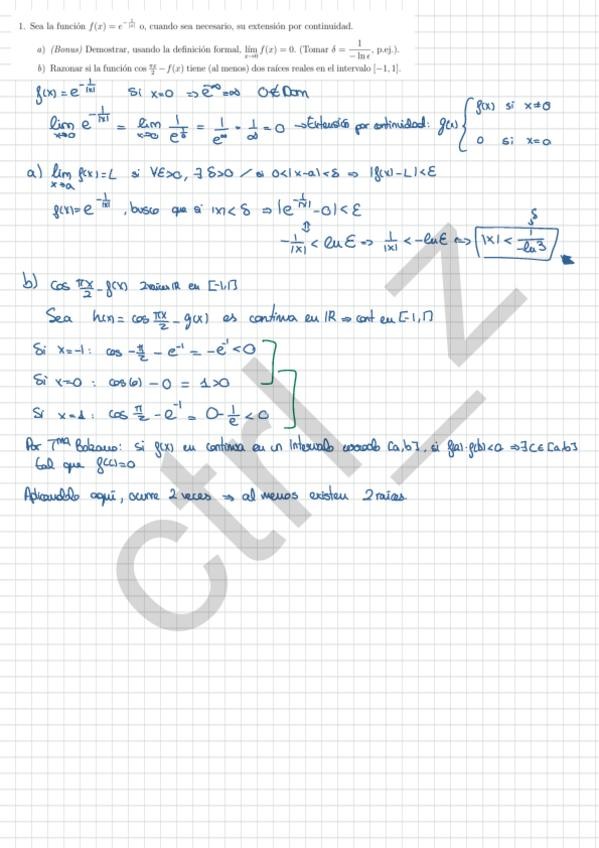 1. Sea la función f(x) = e^{-1/|x|} o, cuando sea necesario, su extensión por continuidad.
a) (Bonus) Demostrar, usando la definición formal, lim_{x→0} f(x) = 0. (Tomar δ = 1/(-ln ε), p.ej.).
b) Razonar si la función cos πx/2 − f(x) tiene (al menos) dos raíces reales en el intervalo [−1, 1].
f(x) = e^{-1/|x|} Si x=0 ⇒ e^{-∞} 0∉Dom
lim_{x→0} e^{-1/|x|} = lim_{x→0} = 1/e^∞ = 1/∞ = 0 → Extensión por continuidad: g(x) { f(x) si x≠0
0 si x=0
a) lim_{x→a} f(x)=L si ∀ε>0, ∃δ>0 / si 0<|x-a|<δ ⇒ |f(x)-L|<ε
f(x)=e^{-1/|x|}, busco que si |x|<δ ⇒ |e^{-1/|x|}-0|<ε
⇕ δ
-1/|x| < ln ε ⇒ 1/|x| < -ln ε ⇔ |x| < 1/(-ln 3)
b) cos πx/2 - f(x) 2 raíces ℝ en [-1,1]
Sea h(x) = cos πx/2 - g(x) es continua en ℝ ⇒ cont en [-1,1]
Si x=-1: cos -π/2 - e^{-1} = -e^{-1} <0
Si x=0: cos(0) - 0 = 1>0
Si x=1: cos π/2 - e^{-1} = 0-1/e <0
Por Tma Bolzano: si f(x) en continua en un intervalo cerrado [a,b], si f(a)·f(b)<0 ⇒ ∃ c∈[a,b]
tal que f(c)=0
Aplicandolo aquí, ocurre 2 veces ⇒ al menos existen 2 raíces.
ctrl_z